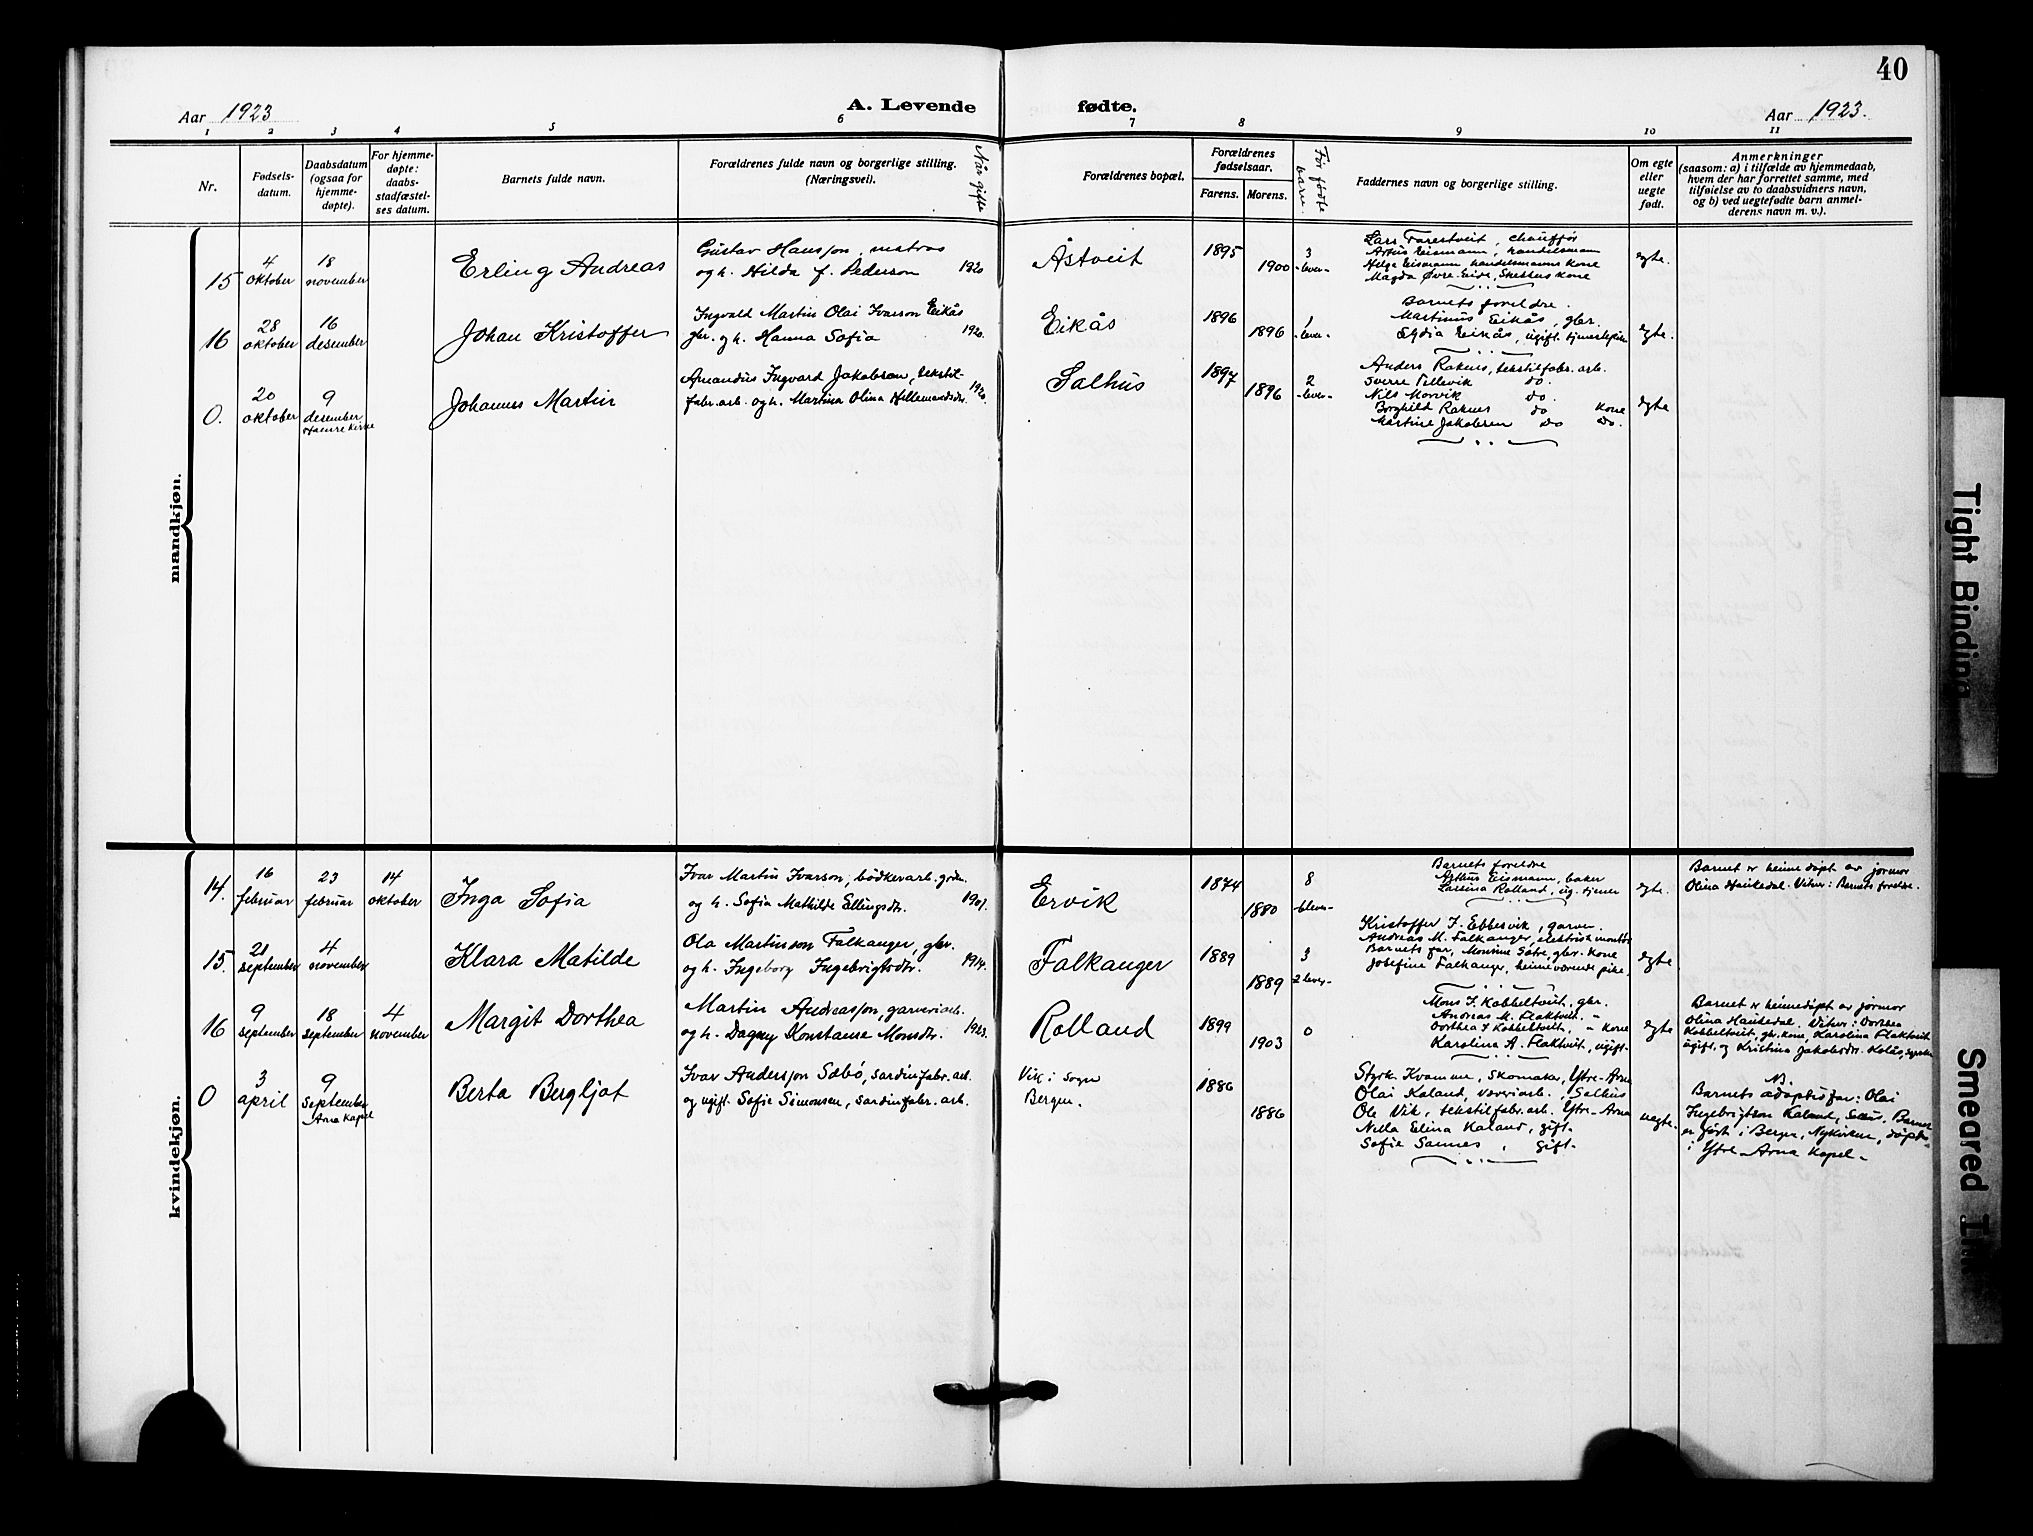 40
Aar 1923
A. Levende
fødte.
Aar 1923.
1 2 3 4 5 6 7 8 9 10 11
Nr.
Fødsels-
datum.
Daabsdatum
(ogsaa for
hjemme-
døpte).
For hjemme-
døpte:
daabs-
stadfæstel-
ses datum.
Barnets fulde navn.
Forældrenes fulde navn og borgerlige stilling.
(Næringsvei).
Når gifte
Forældrenes bopæl.
Forældrenes
fødselsaar.
Farens. Morens.
Før fødte
barn.
Faddernes navn og borgerlige stilling.
Om egte
eller
uegte
født.
Anmerkninger
(saasom: a) i tilfælde av hjemmedaab,
hvem der har forrettet samme, med
tilføielse av to daabsvidners navn,
og b) ved uegtefødte barn anmel-
derens navn m. v.).
mandkjøn.
15
4
oktober
18
november
Erling Andreas
Gustav Hansson, matros
og h. Hilda f. Pederson
1920
Åstveit
1895
1900
3
-lever-
Lars Forestveit, chauffør
Astus Eismann, handelsmann
Helga Eismann handelsmanns kone
Magda Øvre-Eide, kone
egte.
16
28
oktober
16
desember
Johan Kristoffer
Ingvald Martin Olai Ivarson Eikås
gbr. og h. Hanna Sofia
1920.
Eikås
1896
1896
1
-lever-
Barnets foreldre.
Martinus Eikås, gbr.
Lydia Eikås, ugift. tjenestepike
egte.
0.
20
oktober
9
desember
kirke
Johannes Martin
Amandus Ingvard Jakobson, tekstil-
fabr. arb. og h. Martina Olina Hillemandsdtr.
1920.
Salhus
1897
1896
2
-lever-
Anders Raknes, tekstilfabr. arb.
Sverre Tellevik do.
Nils Morvik do.
Borghild Raknes do kone
Martine Jakobsen do do.
egte
kvindekjøn.
14.
16
februar
23
februar
14
oktober
Inga Sofia
Ivar Martin Ivarson, bødkerarb.
og h. Sofia Mathilde Ellingsdtr.
1901.
Ervik
1874
1880
8
-6 lever-
Barnets foreldre
Asthus Eismann, baker
Larina Rolland, ug. tjener
egte.
Barnet er heimedøpt av jormor
Olina Haukedal. Vitner: Barnets foreldre.
15.
21
september
4
november
Klara Matilde
Ola Martinson Falkanger, gbr.
og h. Ingeborg Ingebrigtsdtr.
1914.
Falkanger
1889
1889
3
2 lever-
Kristoffer J. Ebbesvik, garver.
Andreas M. Falkanger, elektrisk montør
Barnets far, Monsine Sætre, gbr. kone
Josefine Falkanger, heimeværende pike.
egte
16
9
september
18
september
4
november
Margit Dorthea
Martin Andreasson, garveriarb.
og h. Dagny Konstanse Monsdtr.
1923.
Rolland
1899
1903
0
Mons J. Kobbeltveit, gbr.
Andreas M. Flaktveit. "
Dorthea J. Kobbeltveit. " kone
Karolina A. Flaktveit, ugift.
egte
Barnet er heimedøpt av jormor
Olina Haukedal. Vitner: Dorthea
Kobbeltveit, gbr. kone, Karolina Flaktveit
ugift, og Kristina Jakobsdtr. Kolås,
0
3
april
9
september
Arna Kapel
Berta Bergljot
Ivar Andersson Sæbø, sardinfabr. arb.
og ugift Sofie Simonsen, sardinfabr. arb.
Vik i Sogn
Bergen.
1886
1886
Styrk. Kvamme, skomaker, Ytre-Arna
Olai Kaland, væveriarb., Salhus
Ole Vik, tekstilfabr. arb. Ytre-Arna
Nilla Elina Kaland, gift.
Sofie Sannes, gift.
uegte.
NB.
Barnets adoptivfar: Olai
Ingebrigtson Kaland, Salhus. Barnet
er født i Bergen, Nykirken, døpt
i Ytre-Arna Kapel.
Tight Binding
Smeared